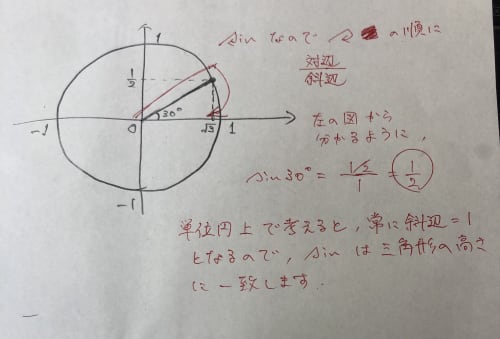 1
sinなので の順に
1/2
対辺/斜辺
30°
-1 0 √3 1
左の図から
分かるように,
sin30° = (1/2)/1 = 1/2
-1
単位円上で考えると, 常に斜辺=1
となるので, sinは三角形の高さ
に一致します.